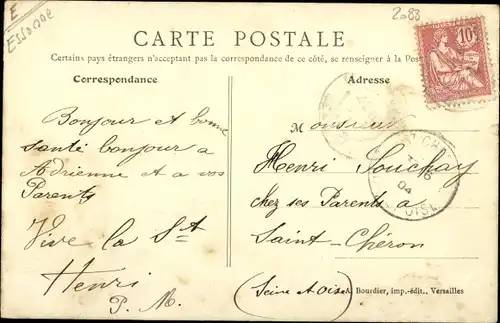 E
Essonne
2088
CARTE POSTALE
Certains pays étrangers n'acceptant pas la correspondance de ce côté, se renseigner à la Post
Correspondance
Adresse
10
Bonjour et bonne
santé bonjour a
Adrienne et a vos
Parents
Vive la St
Henri
P. M.
Monsieur
Henri Souchay
chez ses Parents a
Saint-Chéron
(Seine et Oise)
04
OISE
Bourdier, imp.-édit., Versailles